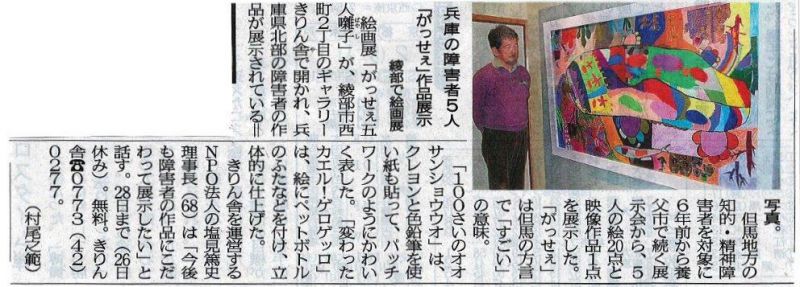 兵庫の障害者5人
「がっせぇ」作品展示
綾部で絵画展
絵画展「がっせぇ五
人囃子」が、綾部市西
町2丁目のギャラリー
きりん舎で開かれ、兵
庫県北部の障害者の作
品が展示されている＝
写真。
但馬地方の
知的・精神障
害者を対象に
6年前から養
父市で続く展
示会から、5
人の絵20点と
映像作品1点
を展示した。
「がっせぇ」
は但馬の方言
で「すごい」
の意味。
「100さいのオオ
サンショウウオ」は、
クレヨンと色鉛筆を使
い紙も貼って、パッチ
ワークのようにかわい
く表した。「変わった
カエル！ゲロゲッロ」
は、絵にペットボトル
のふたなどを付け、立
体的に仕上げた。
きりん舎を運営する
NPO法人の塩見篤史
理事長(68)は「今後
も障害者の作品にこだ
わって展示したい」と
話す。28日まで(26日
休み)。無料。きりん
舎☎0773(42)
0277。
(村尾之範)